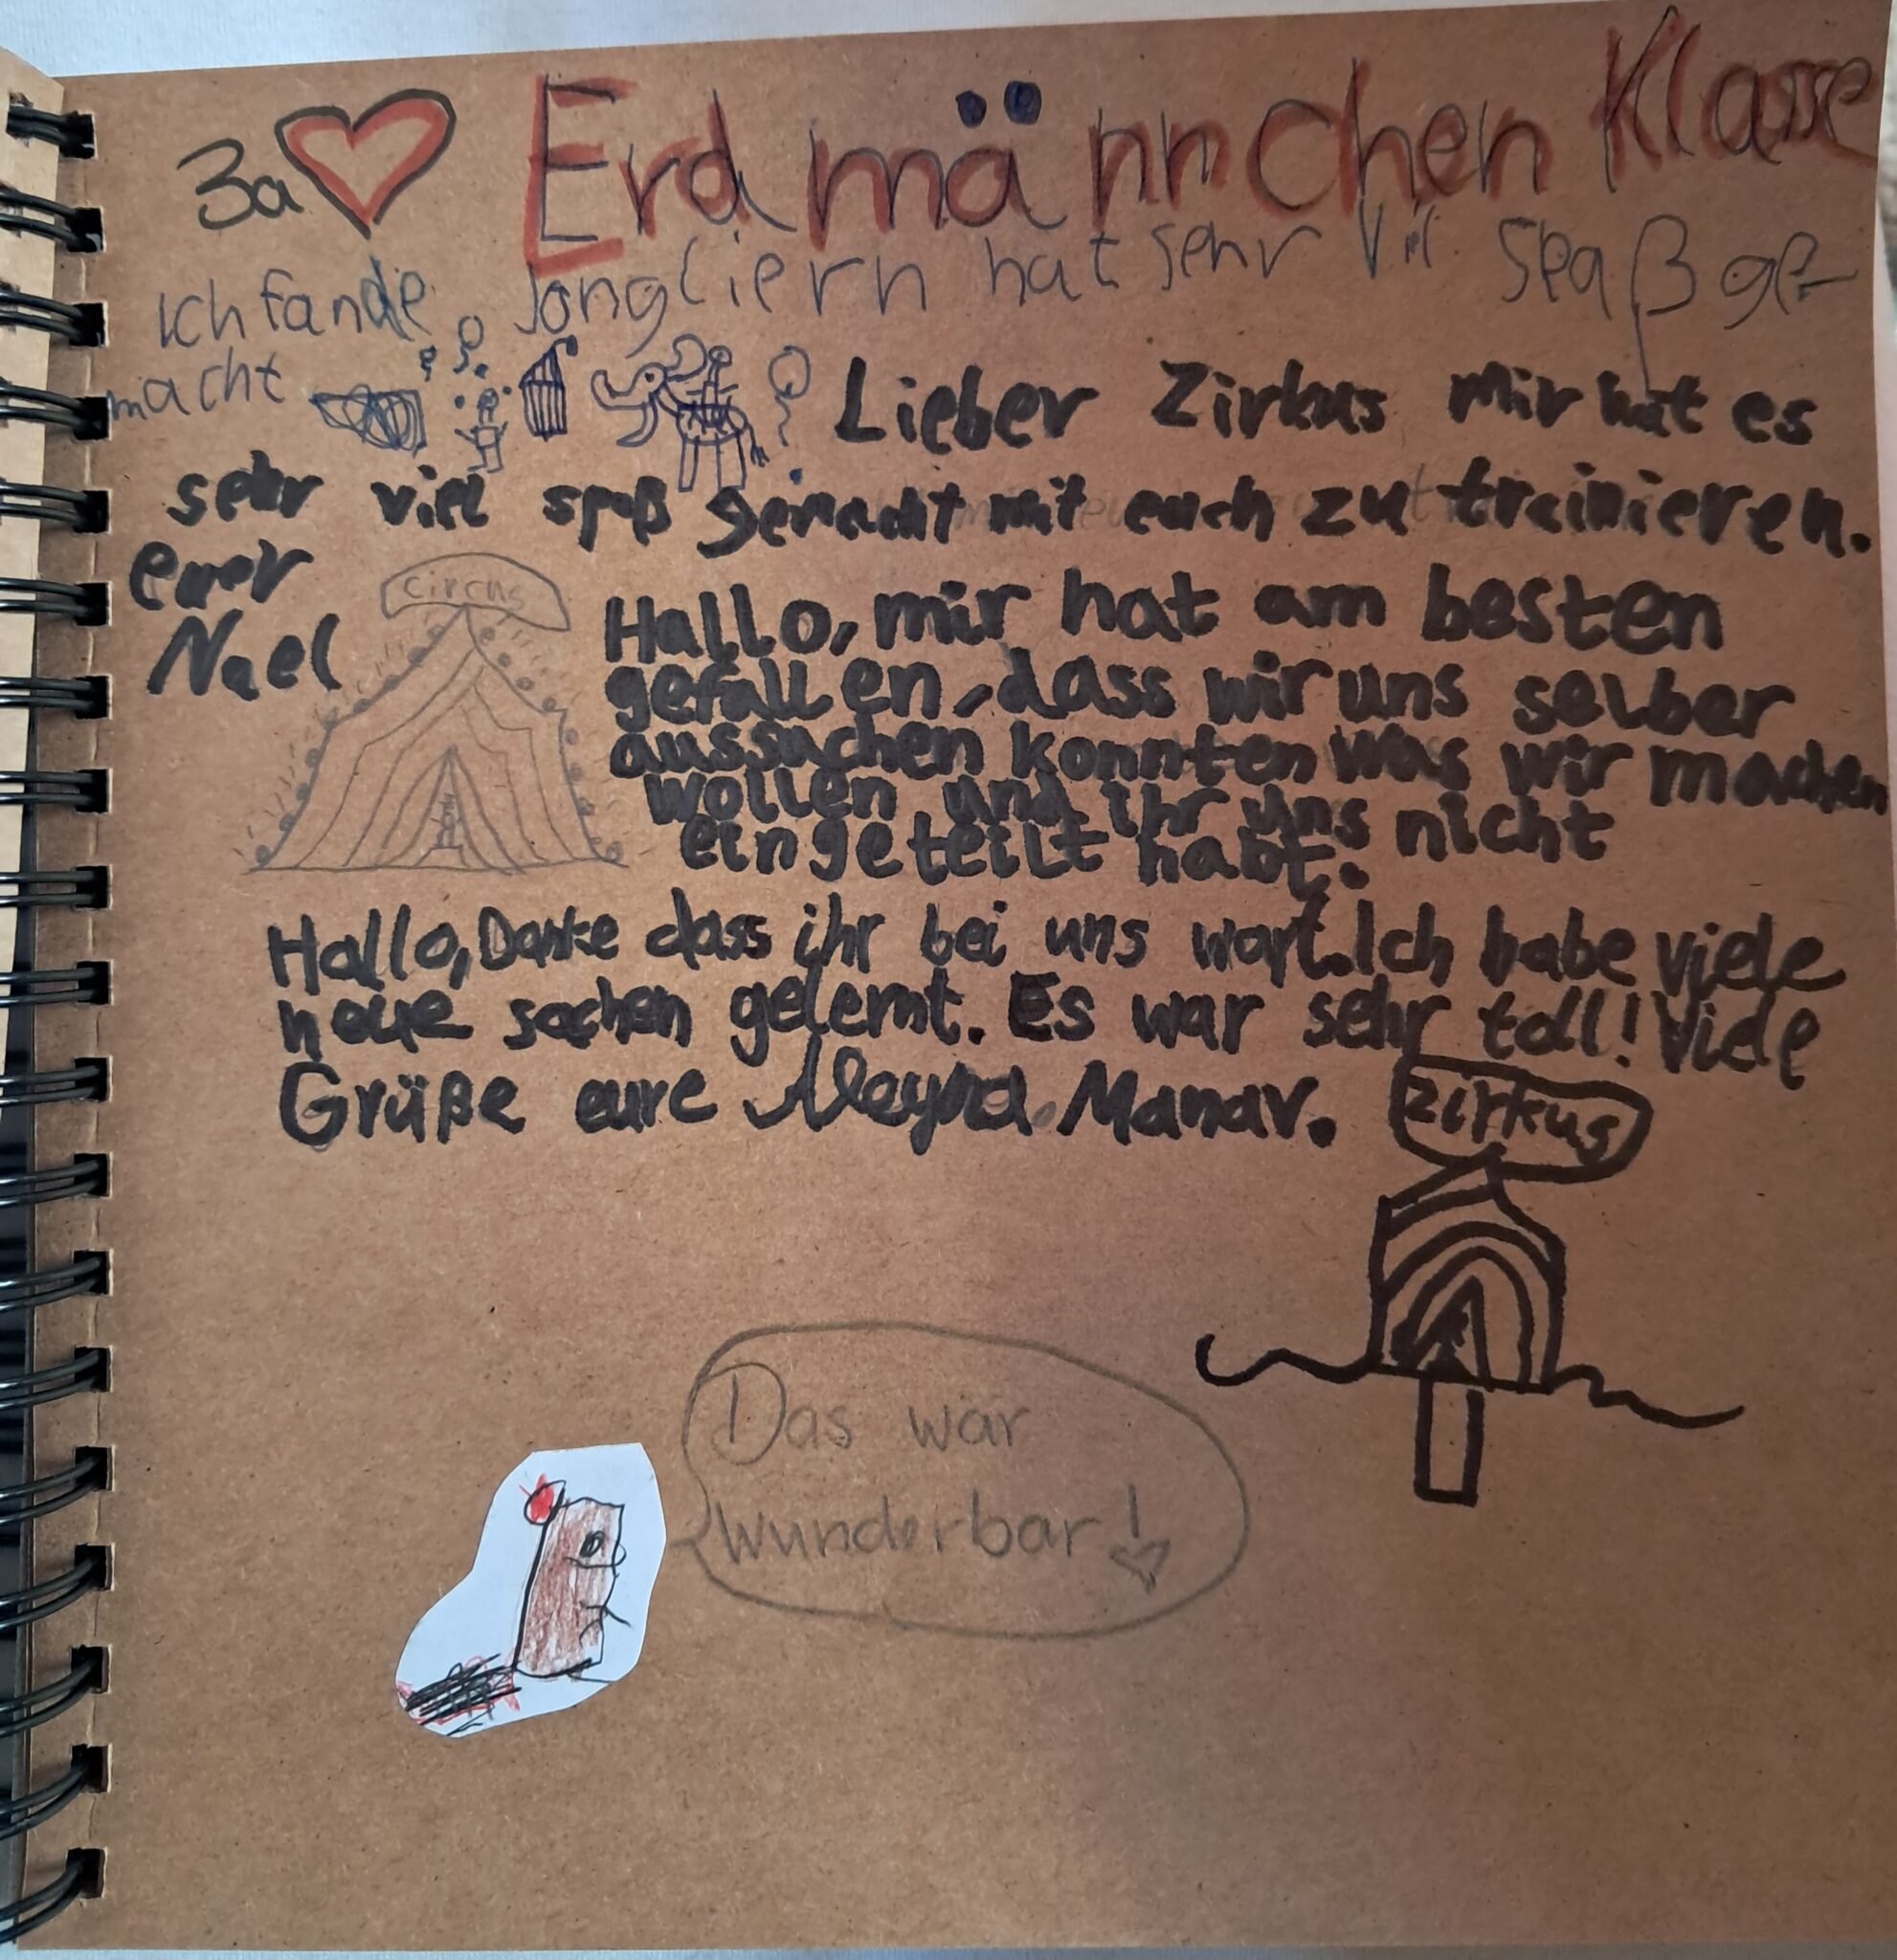 3a Erdmännchen Klasse
Ich fande Jongliern hat sehr viel Spaß ge-
macht
Lieber Zirkus mir hat es
sehr viel spaß gemacht mit euch zu trainieren.
euer
Nael
circus
Hallo, mir hat am besten
gefallen, dass wir uns selber
aussuchen konnten was wir machen
wollen und ihr uns nicht
eingeteilt habt.
Hallo, Danke dass ihr bei uns wart. Ich habe viele
neue sachen gelernt. Es war sehr toll! Viele
Grüße eure Aleyna Manav.
zirkus
Das war
wunderbar!